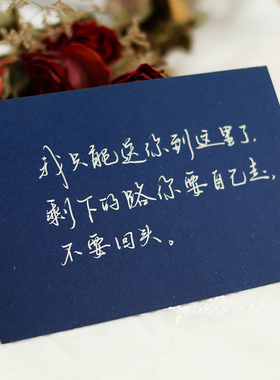 我只能送你到这里了.
剩下的路你要自己走,
不要回头。